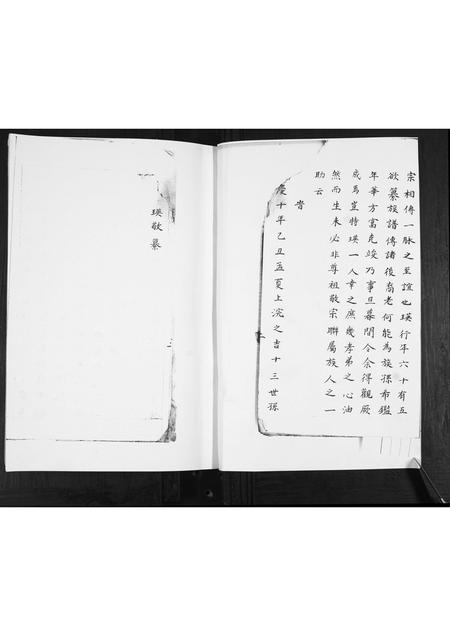 宗相傳一脉之至誼也瑛行年六十有五
欲纂族譜傳諸後裔老何能為族孫希鑑
年華方富克竣乃事旦暮間令余得觀厥
成焉豈特瑛一人幸之庶幾孝弟之心油
然而生未必非尊祖敬宗聯屬族人之一
助云
旹
慶十年乙丑孟夏上浣之吉十三世孫
瑛敬纂